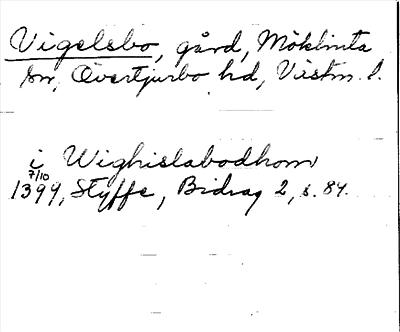 Vigelsbo, gård, Möklinta
sn, Övertjurbo hd, Västm. l.
i Wighislabodhom
7/10
1399, Styffe, Bidrag 2, s. 84.